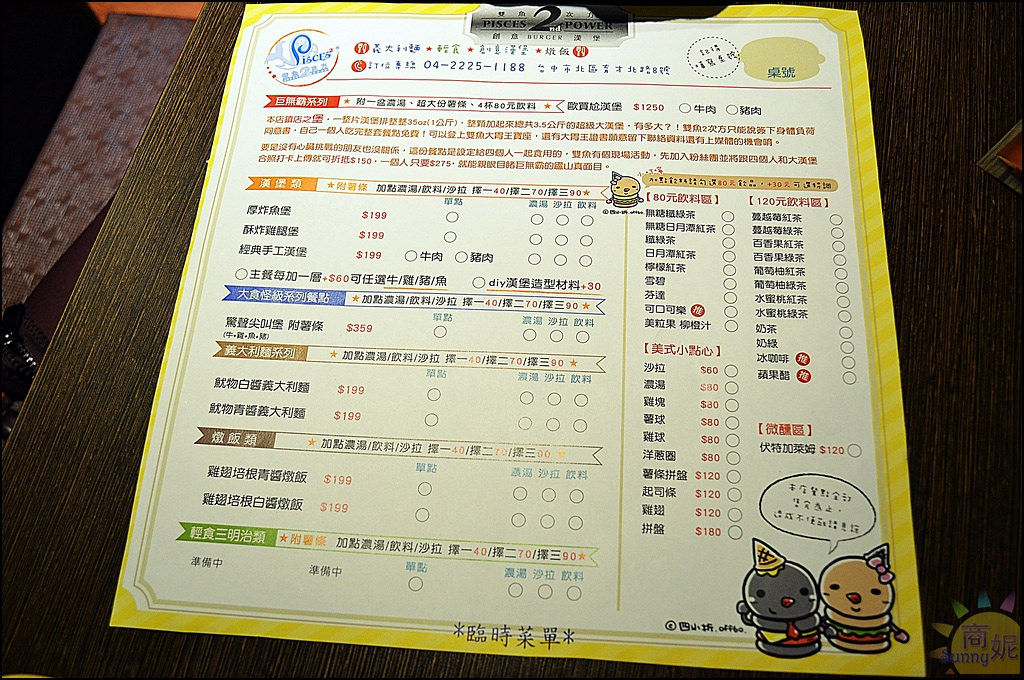 雙魚 2nd 次方
PISCES POWER
創意 BURGER 漢堡
Pisces²
義大利麵 ★ 輕食 ★ 創意漢堡 ★ 燉飯
訂位專線 04-2225-1188 台中市北區育才北路8號
桌號
巨無霸系列 ★ 附一盆濃湯、超大份薯條、4杯80元飲料 ★ 歐買尬漢堡 $1250 牛肉 豬肉
本店鎮店之堡,一整片漢堡排整整35oz(1公斤),整顆加起來總共3.5公斤的超級大漢堡,有多大?!雙魚2次方只能說簽下身體負荷
同意書,自己一個人吃完整套餐點免費!可以登上雙魚大胃王寶座,還有大胃王證書願意留下聯絡資料還有上媒體的機會唷。
要是沒有心臟挑戰的朋友也沒關係,這份餐點是設定給四個人一起食用的,雙魚有個現場活動,先加入粉絲團並將跟四個人和大漢堡
合照打卡上傳就可折抵$150,一個人只要$275,就能親眼目睹巨無霸的廬山真面目。
漢堡類 ★附薯條 加點濃湯/飲料/沙拉 擇一40/擇二70/擇三90★
單點 濃湯 沙拉 飲料
厚炸魚堡 $199
酥炸雞腿堡 $199
經典手工漢堡 $199 牛肉 豬肉
主餐每加一層+$60可任選牛/雞/豬/魚 diy漢堡造型材料+30
大食怪級系列餐點 ★ 加點濃湯/飲料/沙拉 擇一40/擇二70/擇三90 ★
單點 濃湯 沙拉 飲料
驚聲尖叫堡 附薯條 $359
(牛+雞+魚+豬)
義大利麵系列 ★ 加點濃湯/飲料/沙拉 擇一40/擇二70/擇三90 ★
單點 濃湯 沙拉 飲料
魷物白醬義大利麵 $199
魷物青醬義大利麵 $199
燉飯類 ★ 加點濃湯/飲料/沙拉 擇一40/擇二70/擇三90 ★
單點 濃湯 沙拉 飲料
雞翅培根青醬燉飯 $199
雞翅培根白醬燉飯 $199
輕食三明治類 ★附薯條 加點濃湯/飲料/沙拉 擇一40/擇二70/擇三90★
準備中 準備中 單點 濃湯 沙拉 飲料
*臨時菜單*
加點飲料請勾選80元飲品,+30元可選特調
©四小折.offbo.
【80元飲料區】
無糖纖綠茶
無糖日月潭紅茶
纖綠茶
日月潭紅茶
檸檬紅茶
雪碧
芬達
可口可樂 推
美粒果 柳橙汁
【120元飲料區】
蔓越莓紅茶
蔓越莓綠茶
百香果紅茶
百香果綠茶
葡萄柚紅茶
葡萄柚綠茶
水蜜桃紅茶
水蜜桃綠茶
奶茶
奶綠
冰咖啡 推
蘋果醋 推
【美式小點心】
沙拉 $60
濃湯 $80
雞塊 $80
薯球 $80
雞球 $80
洋蔥圈 $80
薯條拼盤 $120
起司條 $120
雞翅 $120
拼盤 $180
【微醺區】
伏特加萊姆 $120
本店餐點全部
售完為止,
造成不便敬請見諒
©四小折.offbo.
商妮
Sunny